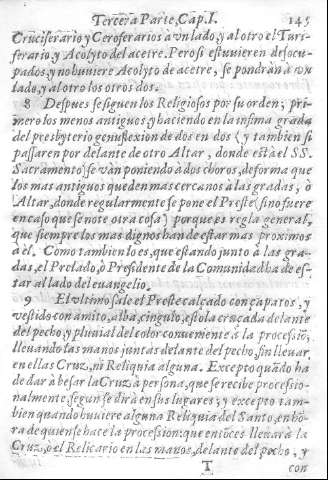 Tercera Parte, Cap. I. 145
Cruciferario y Ceroferarios à vn lado, y al otro el Turi-
ferario, y Acolyto del acetre. Pero si estuvieren desocu-
pados, y no huviere Acolyto de acetre, se pondràn à vn
lado, y al otro los otros dos.
8 Despues se siguen los Religiosos por su orden; pri-
mero los menos antiguos, y haciendo en la infima grada
del presbyterio genuflexion de dos en dos (y tambien si
passaren por delante de otro Altar, donde està el SS.
Sacramento) se van poniendo à dos choros, de forma que
los mas antiguos queden mas cercanos à las gradas, ò
Altar, donde regularmente se pone el Preste (si no fuere
en caso que se note otra cosa) porque es regla general,
que siempre los mas dignos han de estar mas proximos
à èl. Como tambien lo es, que estando junto à las gra-
das, el Prelado, ò Presidente de la Comunidad ha de es-
tar al lado del euangelio.
9 El vltimo sale el Preste calçado con çapatos, y
vestido con amito, alba, cingulo, estola cruçada delante
del pecho, y pluuial del color conueniente à la processiõ,
lleuando las manos juntas delante del pecho, sin lleuar
en ellas Cruz, ni Reliquia alguna. Excepto quãdo ha
de dar à besar la Cruz à persona, que se recibe processio-
nalmente segun se dirà en sus lugares; y excepto tam-
bien quando huuiere alguna Reliquia del Santo, en hõ-
ra de quien se hace la procession: que entõces lleuarà la
Cruz, ò el Relicario en las manos, delante del pecho, y
T con